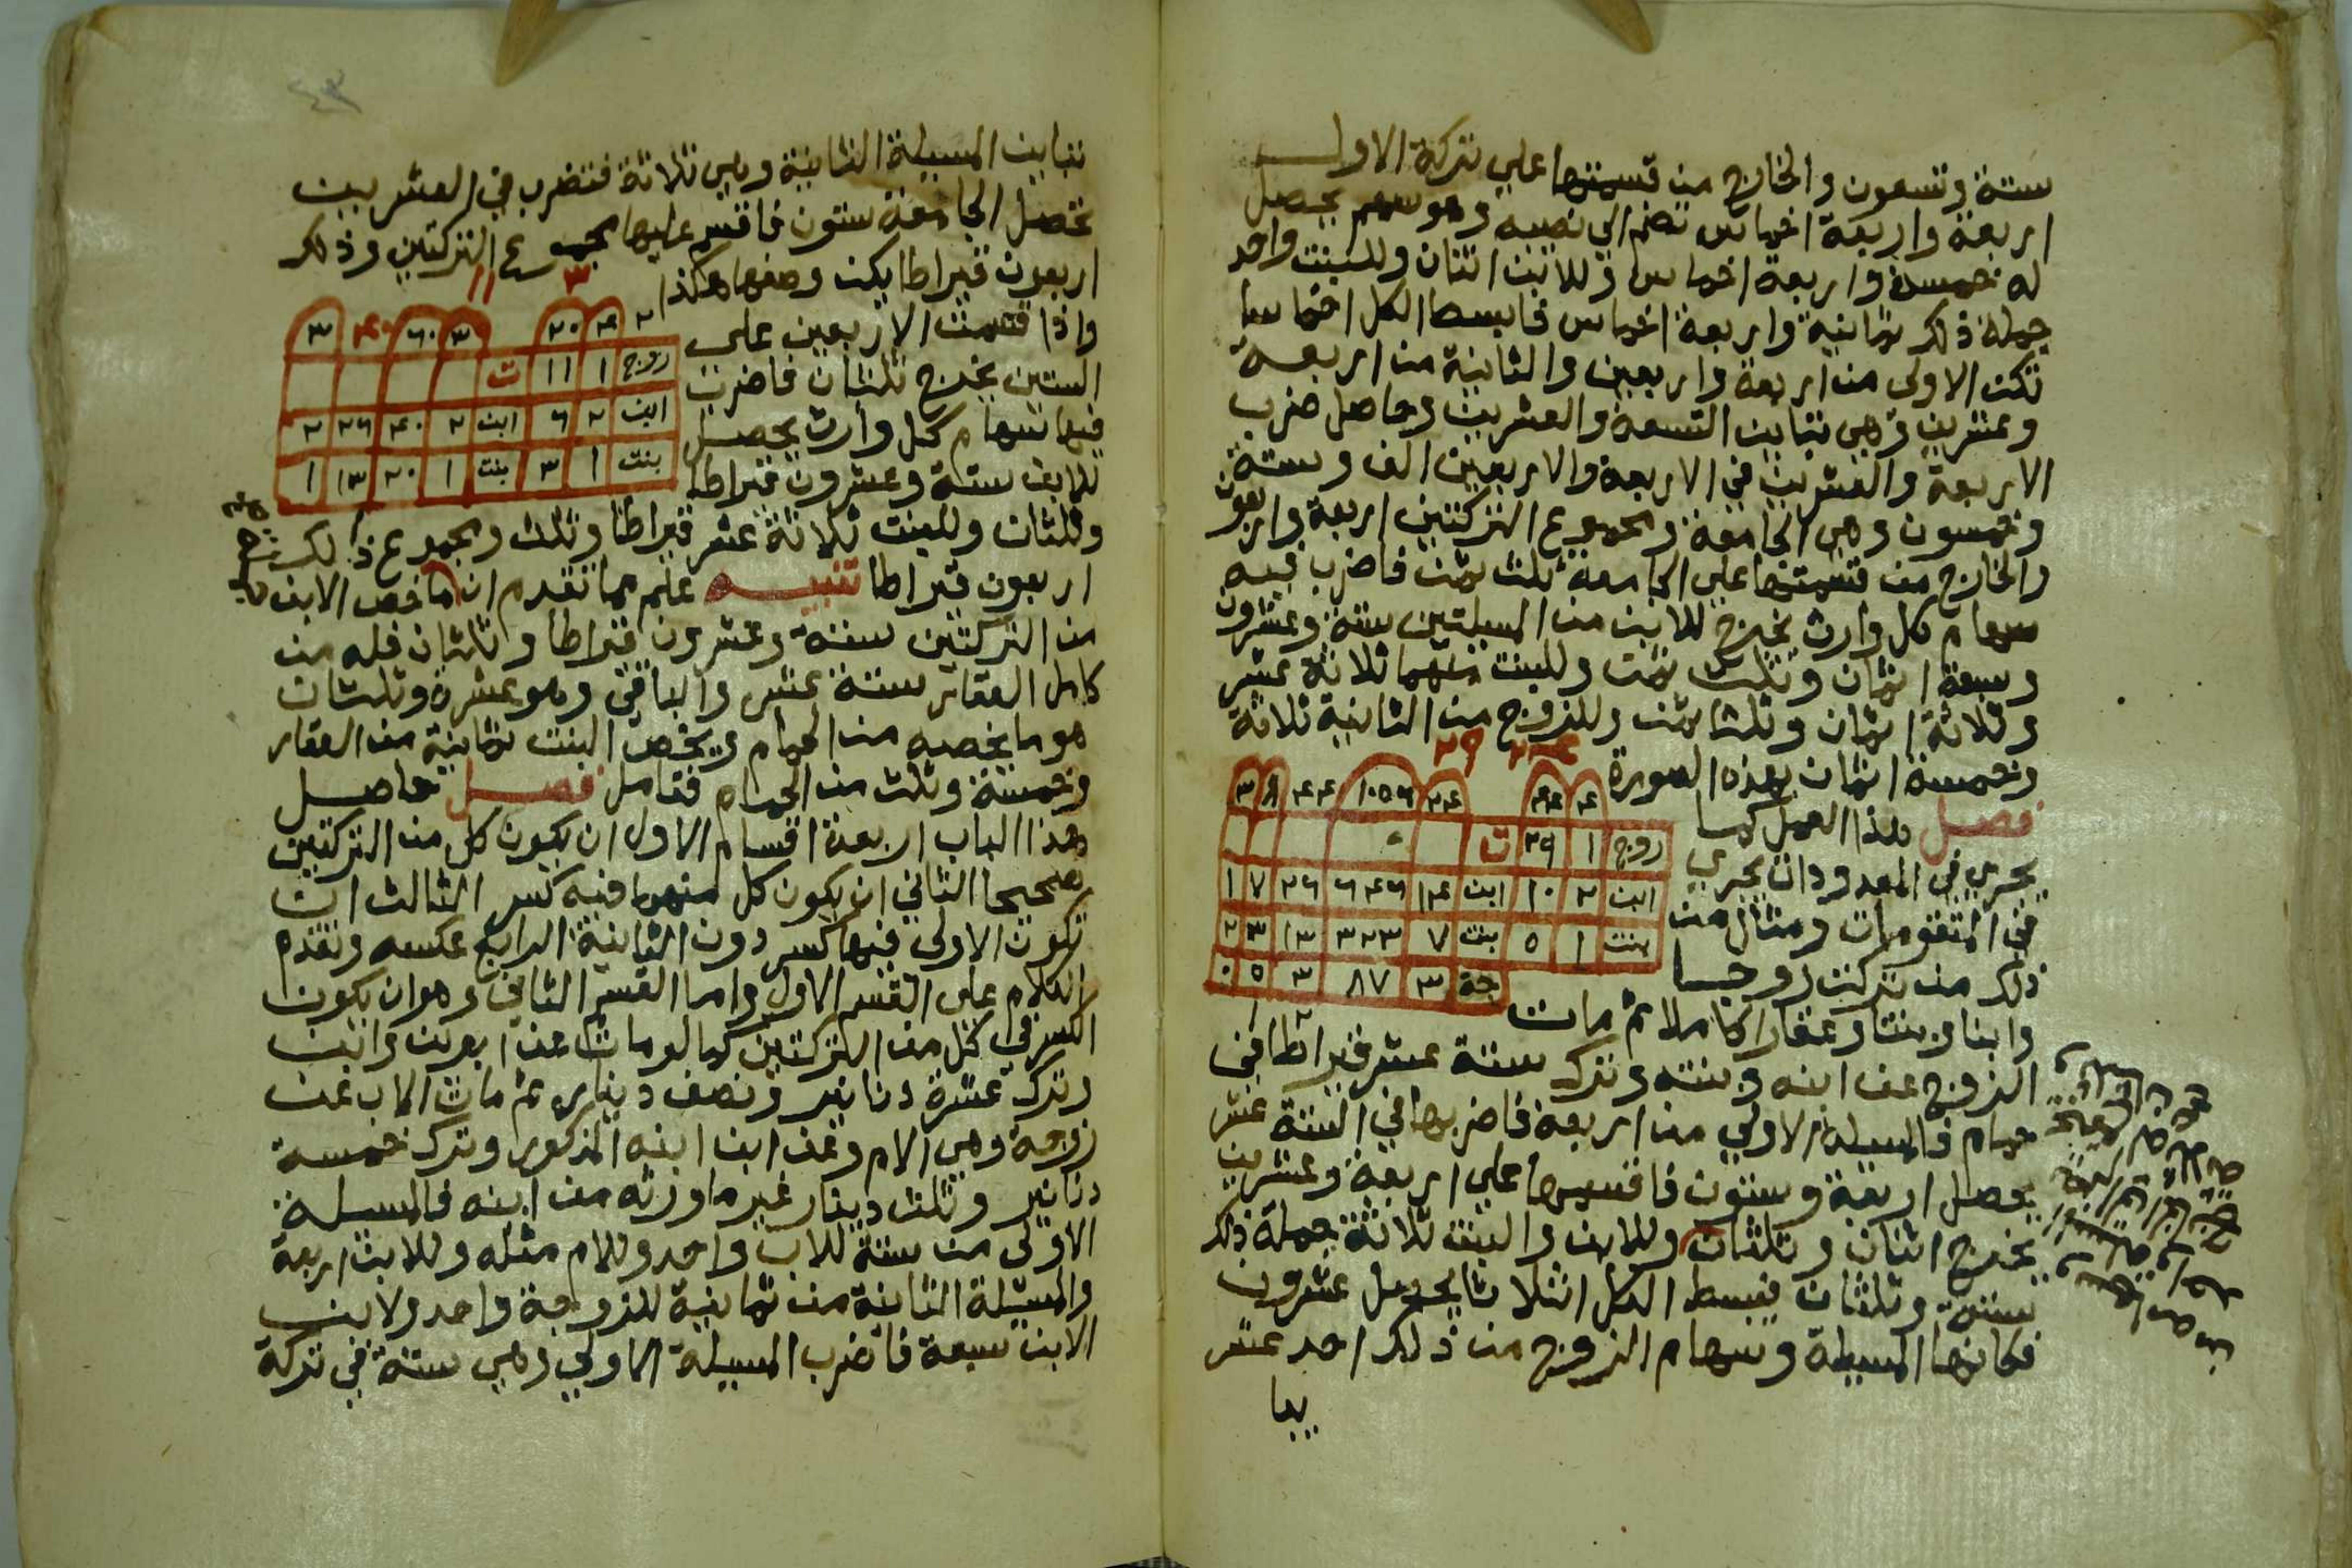 ستة وتسعون والخارج من قسمتها علي تركة الاول
اربعة واربعة اخماس تضم الي نصيبه وهو سهم يحصل
له خمسة واربعة اخماس وللابن اثنان وللبنت واحد
جملة ذلك ثمانية واربعة اخماس فابسط الكل اخماسا
تكن الاولى من اربعة واربعين والثانية من اربعة
وعشرين وهي تباين التسعة والعشرين وحاصل ضرب
الاربعة والعشرين في الاربعة والاربعين الف وستة
وخمسون وهي الجامعة ومجموع التركتين اربعة واربعون
والخارج من قسمتها علي الجامعة ثلث ثمن فاضرب فيه
سهام كل وارث يخرج للابن من المسيلتين ستة وعشرون
وسبعة اثمان وثلث ثمن وللبنت منهما ثلاثة عشر
وثلاثة اثمان وثلثا ثمن وللزوج من الثانية ثلاثة
وخمسة اثمان بهذه الصورة
٢٤ ٢٩
٤ ٤٤ ٢٤ ١٠٥٦ ٤٤ ٨ ٣
زوج ١ ٢٩ ت
ابن ٢ ١٠ ابن ١٤ ٦٤٦ ٢٦ ٧ ١
بنت ١ ٥ بنت ٧ ٣٢٣ ١٣ ٣ ٢
جة ٣ ٨٧ ٣ ٥ ٠
فصل هذا العمل كما
يجري في المعدودات يجري
في المتقومات ومثال من
ذلك من تركت زوجا
وابنا وبنتا وعقارا كاملا ثم مات
الزوج عن ابنه وبنته وترك ستة عشر قيراطا في
حمام فالمسيلة الاولي من اربعة فاضربها في الستة عشر
يحصل اربعة وستون فاقسمها علي اربعة وعشرين
يخرج اثنان وثلثان وللابن والبنت ثلاثة جملة ذلك
ستة وثلثان فبسط الكل اثلاثا يحصل عشرون
فكانها المسيلة وسهام الزوج من ذلك احد عشر
يبا
تباين المسيلة الثانية وهي ثلاثة فتضرب في العشرين
تحصل الجامعة ستون فاقسم عليها مجموع التركتين وذلك
اربعون قيراطا يكن وصفها هكذا
٣ ١١
٤ ٢٠ ٣ ٦٠ ٤٠ ٣
زوج ١ ١١ ت
ابن ٢ ٦ ابن ٢ ٤٠ ٢٦ ٢
بنت ١ ٣ بنت ١ ٢٠ ١٣ ١
واذا قسمت الاربعين على
الستين يخرج ثلثان فاضرب
فيها سهام كل وارث يحصل
للابن ستة وعشرون قيراطا
وثلثان وللبنت ثلاثة عشر قيراطا وثلث ومجموع ذلك
اربعون قيراطا تنبيه علم مما تقدم ان ما خص الابن
من التركتين ستة وعشرون قيراطا وثلثان فله من
كامل العقار ستة عشر والباقي وهو عشرة وثلثان
هو ما يخصه من الحمام ويخص البنت ثمانية من العقار
وخمسة وثلث من الحمام فتامل فصل حاصل
هذا الباب اربعة اقسام الاول ان يكون كل من التركتين
صحيحا الثاني ان يكون كل منهما فيه كسر الثالث ان
تكون الاولى فيها كسر دون الثانية الرابع عكسه وتقدم
الكلام على القسم الاول واما القسم الثاني وهو ان يكون
الكسر في كل من التركتين كما لو مات عن ابوين وابن
وترك عشرة دنانير ونصف دينار ثم مات الاب عن
زوجة وهي الام وعن ابن ابنه المذكور وترك خمسة
دنانير وثلث دينار غير ما ورثه من ابنه فالمسيلة
الاولى من ستة للاب واحد وللام مثله وللابن اربعة
والمسيلة الثانية من ثمانية للزوجة واحد ولابن
الابن سبعة فاضرب المسيلة الاولي وهي ستة في تركة